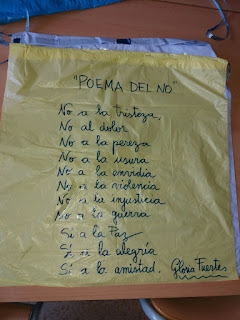 "POEMA DEL NO"
No a la tristeza,
No al dolor
No a la pereza
No a la usura
No a la envidia
No a la violencia
No a la injusticia
No a la guerra
Sí a la Paz
Sí a la alegría
Sí a la amistad.
Gloria Fuertes